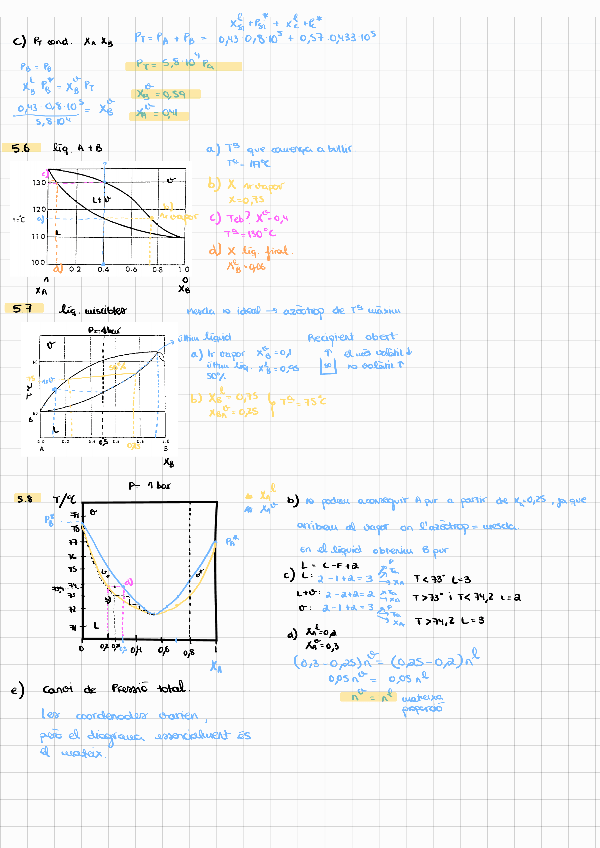 c) PT cond. XA XB
PT = PA + PB = 0,43·0,8·10⁵ + 0,57·0,433·10⁵
PB = PB
PT = 5,8·10⁴ Pa
X_B^l P_B* = X_B^v PT
X_B^v = 0,59
0,43·0,8·10⁵ / 5,8·10⁴ = X_B^v
X_A^v = 0,41
5.6 liq. A+B
a) Tª que comença a bullir
Tª = 117°C
b) X 1r vapor
X = 0,75
c) Teb? X^v = 0,4
Tª = 130°C
d) X liq. final.
X_B^l = 0,06
130
120
110
100
v
L+v
L
b)
1r vapor
a)
c)
d)
0.2 0.4 0.6 0.8 1.0
1
0
XA
XB
5.7 liq. miscibles
mescla no ideal → azeòtrop de Tª màxim
P=1bar
últim líquid
Recipient obert
a) 1r vapor X_B^v = 0,1
últim liq. X_B^l = 0,95
50%
↑ el més volàtil ↓
no volàtil ↑
b) X_B^l = 0,75
X_B^v = 0,25
Tª = 75°C
v
L
50%
0,5
A
B
XB
5.8
P = 1 bar
T/°C
PB*
PA*
v
L
78
77
76
75
74
73
72
71
0 0,2 0,3 0,4 0,6 0,8 1
XA
X_A^l
X_A^v
b) no podrem aconseguir A pur a partir de XA=0,25, ja que
arribem al vapor on l'azeòtrop = mescla.
en el líquid obtenim B pur
c) L = C-F+2
L: 2-1+2 = 3
P
Tª
XA
T<73° L=3
L+v: 2-2+2 = 2
T>73° i T<74,2 L=2
v: 2-1+2 = 3
P
Tª
XA
T>74,2 L=3
d) X_A^l = 0,2
X_A^v = 0,3
(0,3-0,25)n^v = (0,25-0,2)n^l
0,05n^v = 0,05n^l
n^v = n^l mateixa
proporció
e) Canvi de Pressió total.
Les coordenades varien,
però el diagrama essencialment és
el mateix.